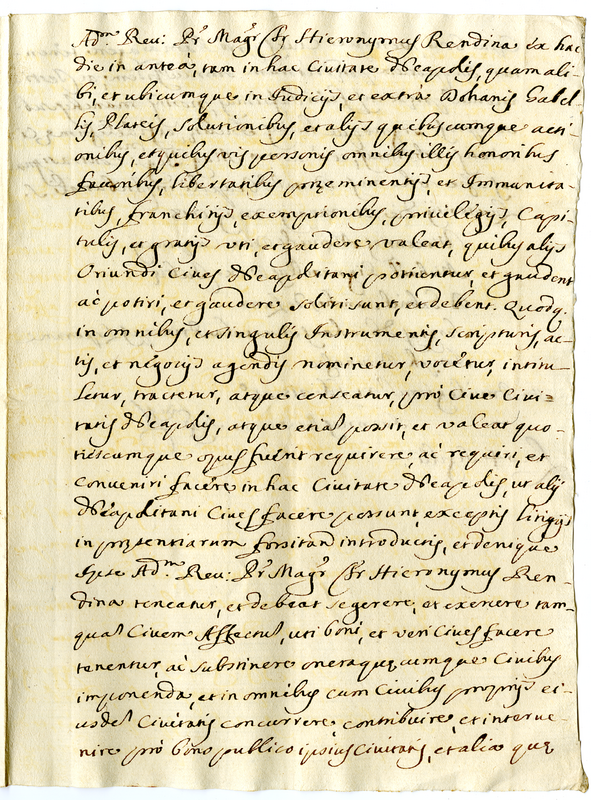 Ad.m Reu: Pr. Mag.r Fr Hieronymus Rendina ex hac
die in antea, tam in hac Ciuitate Neapolis, quam ali-
bi, et ubicumque in Iudicijs, et extrà Dohanis Gabel
lis, Plateis, solutionibus, et alijs quibuscumque acti-
onibus, et quibus vis personis omnibus illis honoribus
fauoribus, libertatibus praeeminentijs, et Immunita-
tibus, franchitijs, exemptionibus, priuilegijs, Capi-
tulis, et gratijs vti, et gaudere valeat, quibus alij
Oriundi Ciues Neapolitani potiuntur, et gaudent
ac potiri, et gaudere soliti sunt, et debent. Quodq.
in omnibus, et singulis Instrumentis, scripturis, ac-
tis, et negocijs agendis nominetur, vocetur, intitu-
letur, tractetur, atque censeatur, pro Ciue Ciui=
tatis Neapolis, atque etia possit, et valeat quo-
tiescumque opus fuerit requirere, ac requiri, et
conueniri facere in hac Ciuitate Neapolis, ut alij
Neapolitani Ciues facere possunt, exceptis litigijs
in praesentiarum forsitan introductis, et denique
Ipse Ad.m Reu: Pr. Mag.r Fr Hieronymus Ren-
dina teneatur, et debeat se gerere, et exercere tam-
qua Ciuem Affectu, uti boni, et veri Ciues facere
tenentur, ac substinere onera quaecumque Ciuibus
imponenda, et in omnibus cum Ciuibus proprijs ei-
usde Ciuitatis concurrere, contribuire, et interue-
nire pro bono publico ipsius Ciuitatis, et alia quae